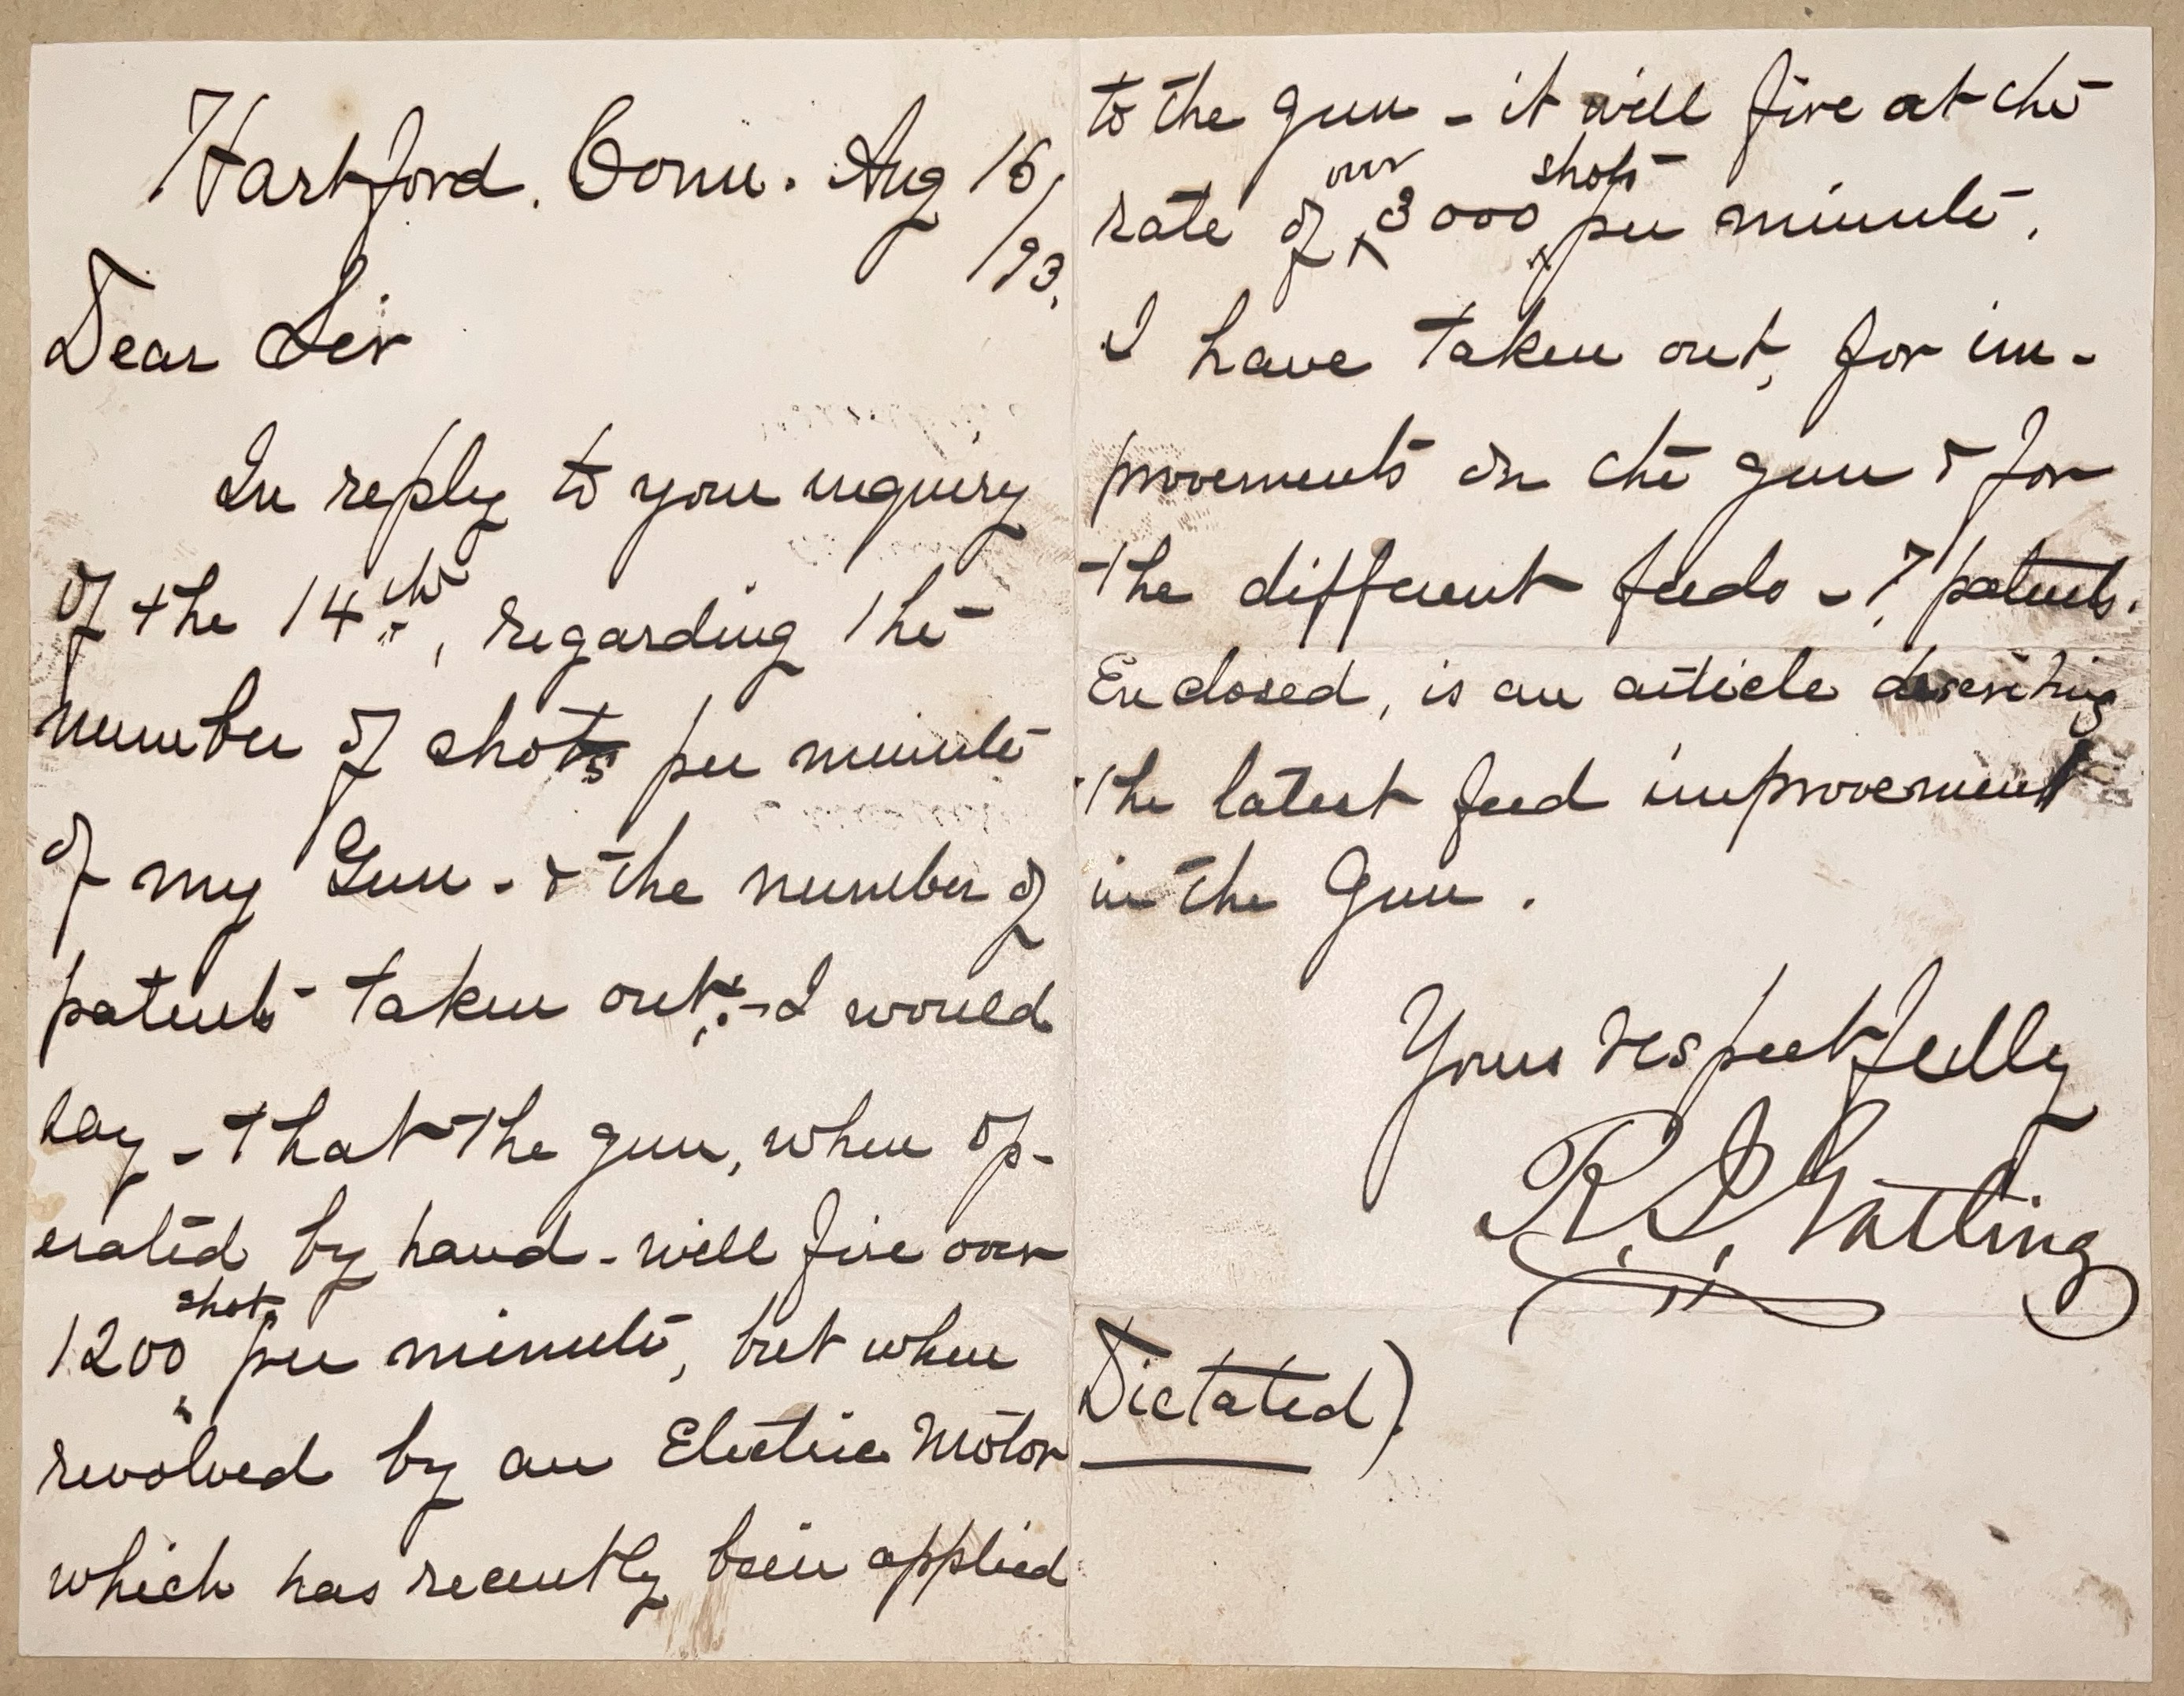 Hartford. Conn. Aug 16/
/93.
Dear Sir
In reply to your inquiry
of the 14th, regarding the
number of shots per minute
of my Gun - & the number of
patents taken out:- I would
say - that the gun, when op-
erated by hand - will fire over
shots
1200 per minute, but when
revolved by an Electric Motor
which has recently been applied
to the gun - it will fire at the
over shots
rate of 3000 per minute.
I have taken out, for im-
provements on the gun & for
the different feeds - 7 patents.
Enclosed, is an article describing
the latest feed improvement
in the Gun.
Yours respectfully
R. J. Gatling
Dictated)